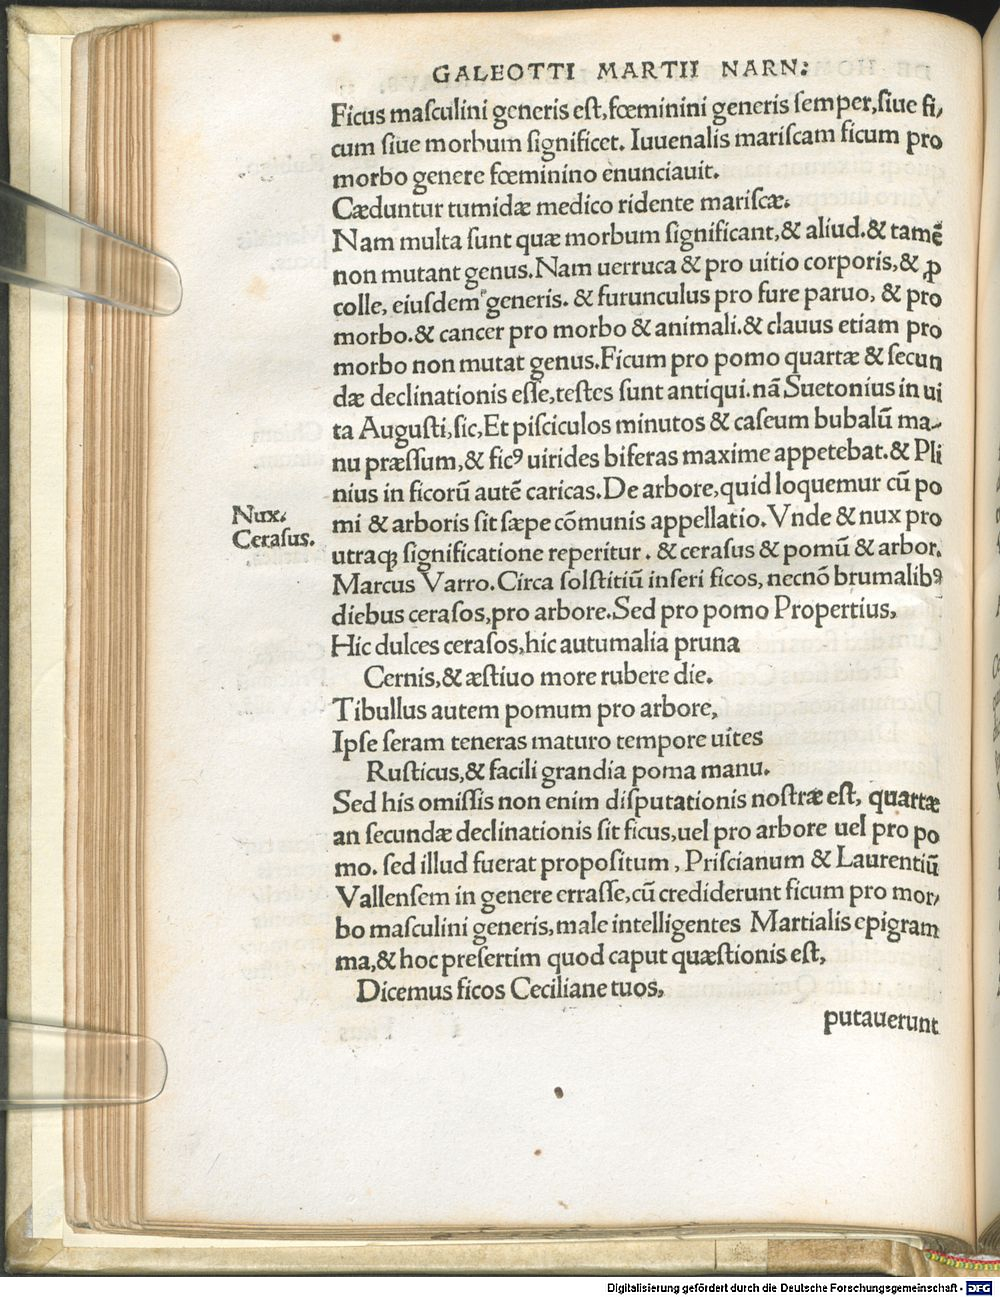 GALEOTTI MARTII NARN:
Ficus masculini generis est, fœminini generis semper, siue fi/
cum siue morbum significet. Iuuenalis mariscam ficum pro
morbo genere fœminino enunciauit.
Cæduntur tumidæ medico ridente mariscæ.
Nam multa sunt quæ morbum significant, & aliud. & tamẽ
non mutant genus. Nam uerruca & pro uitio corporis, & ꝓ
colle, eiusdem generis. & furunculus pro fure paruo, & pro
morbo. & cancer pro morbo & animali. & clauus etiam pro
morbo non mutat genus. Ficum pro pomo quartæ & secun
dæ declinationis esse, testes sunt antiqui. nã Suetonius in ui
ta Augusti, sic, Et pisciculos minutos & caseum bubalũ ma-
nu præssum, & ficꝰ uirides biferas maxime appetebat. & Pli
nius in ficorũ autẽ caricas. De arbore, quid loquemur cũ po
Nux.
mi & arboris sit sæpe cõmunis appellatio. Vnde & nux pro
Cerasus.
utraqꝫ significatione reperitur. & cerasus & pomũ & arbor.
Marcus Varro. Circa solstitiũ inseri ficos, necnõ brumalibꝰ
diebus cerasos, pro arbore. Sed pro pomo Propertius,
Hic dulces cerasos, hic autumalia pruna
Cernis, & æstiuo more rubere die.
Tibullus autem pomum pro arbore,
Ipse seram teneras maturo tempore uites
Rusticus, & facili grandia poma manu.
Sed his omissis non enim disputationis nostræ est, quartæ
an secundæ declinationis sit ficus, uel pro arbore uel pro po
mo. sed illud fuerat propositum, Priscianum & Laurentiũ
Vallensem in genere errasse, cũ crediderunt ficum pro mor/
bo masculini generis, male intelligentes Martialis epigram
ma, & hoc presertim quod caput quæstionis est,
Dicemus ficos Ceciliane tuos,
putauerunt
Digitalisierung gefördert durch die Deutsche Forschungsgemeinschaft - DFG